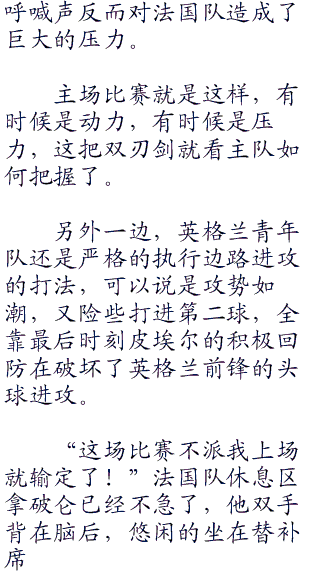 呼喊声反而对法国队造成了
巨大的压力。
主场比赛就是这样，有
时候是动力，有时候是压
力，这把双刃剑就看主队如
何把握了。
另外一边，英格兰青年
队还是严格的执行边路进攻
的打法，可以说是攻势如
潮，又险些打进第二球，全
靠最后时刻皮埃尔的积极回
防在破坏了英格兰前锋的头
球进攻。
“这场比赛不派我上场
就输定了！”法国队休息区
拿破仑已经不急了，他双手
背在脑后，悠闲的坐在替补
席